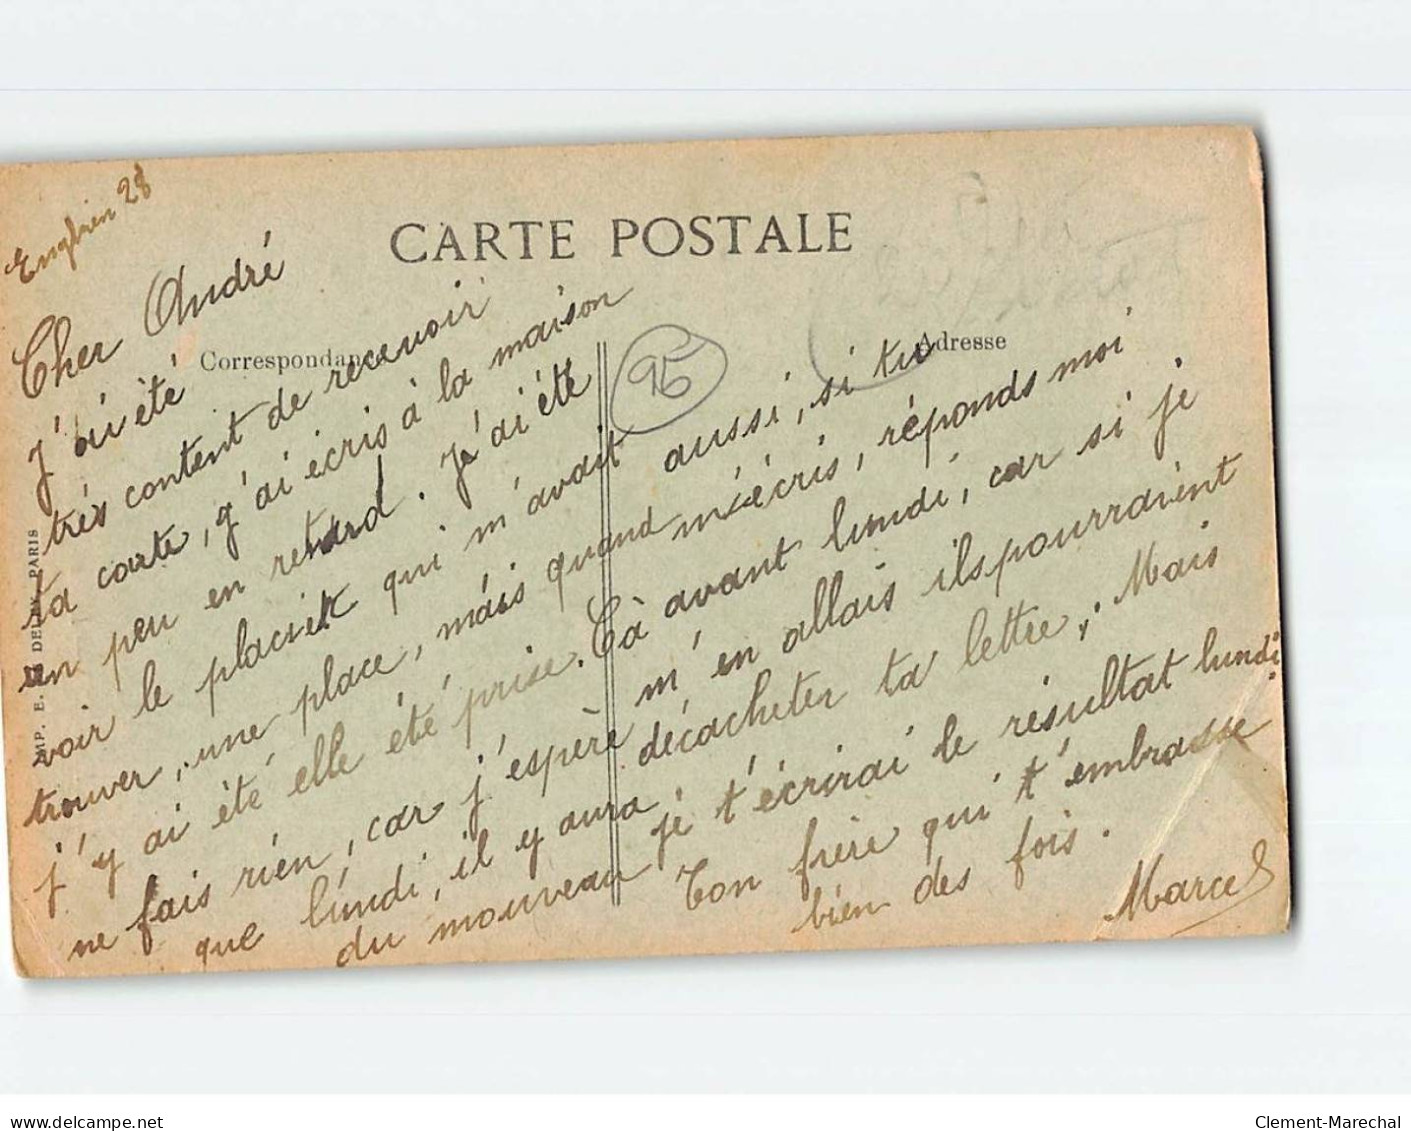 Enghien 28
CARTE POSTALE
Correspondance
Adresse
95
Cher André
J'ai été
très content de recevoir
ta carte, j'ai écris à la maison
un peu en retard. Je ai été
voir le placier qui m'avait aussi, si tu
trouver, une place, mais quand m'écris, réponds moi
j'y ai été elle été prise. Cà avant lundi, car si je
ne fais rien, car j'espère m'en allais ils pourraient
que lundi, il y aura décacheter ta lettre. Mais
du nouveau je t'écrirai le résultat lundi
Ton frère qui t'embrasse
bien des fois.
Marcel
IMP. E. DELEY, PARIS
Clement-Marechal